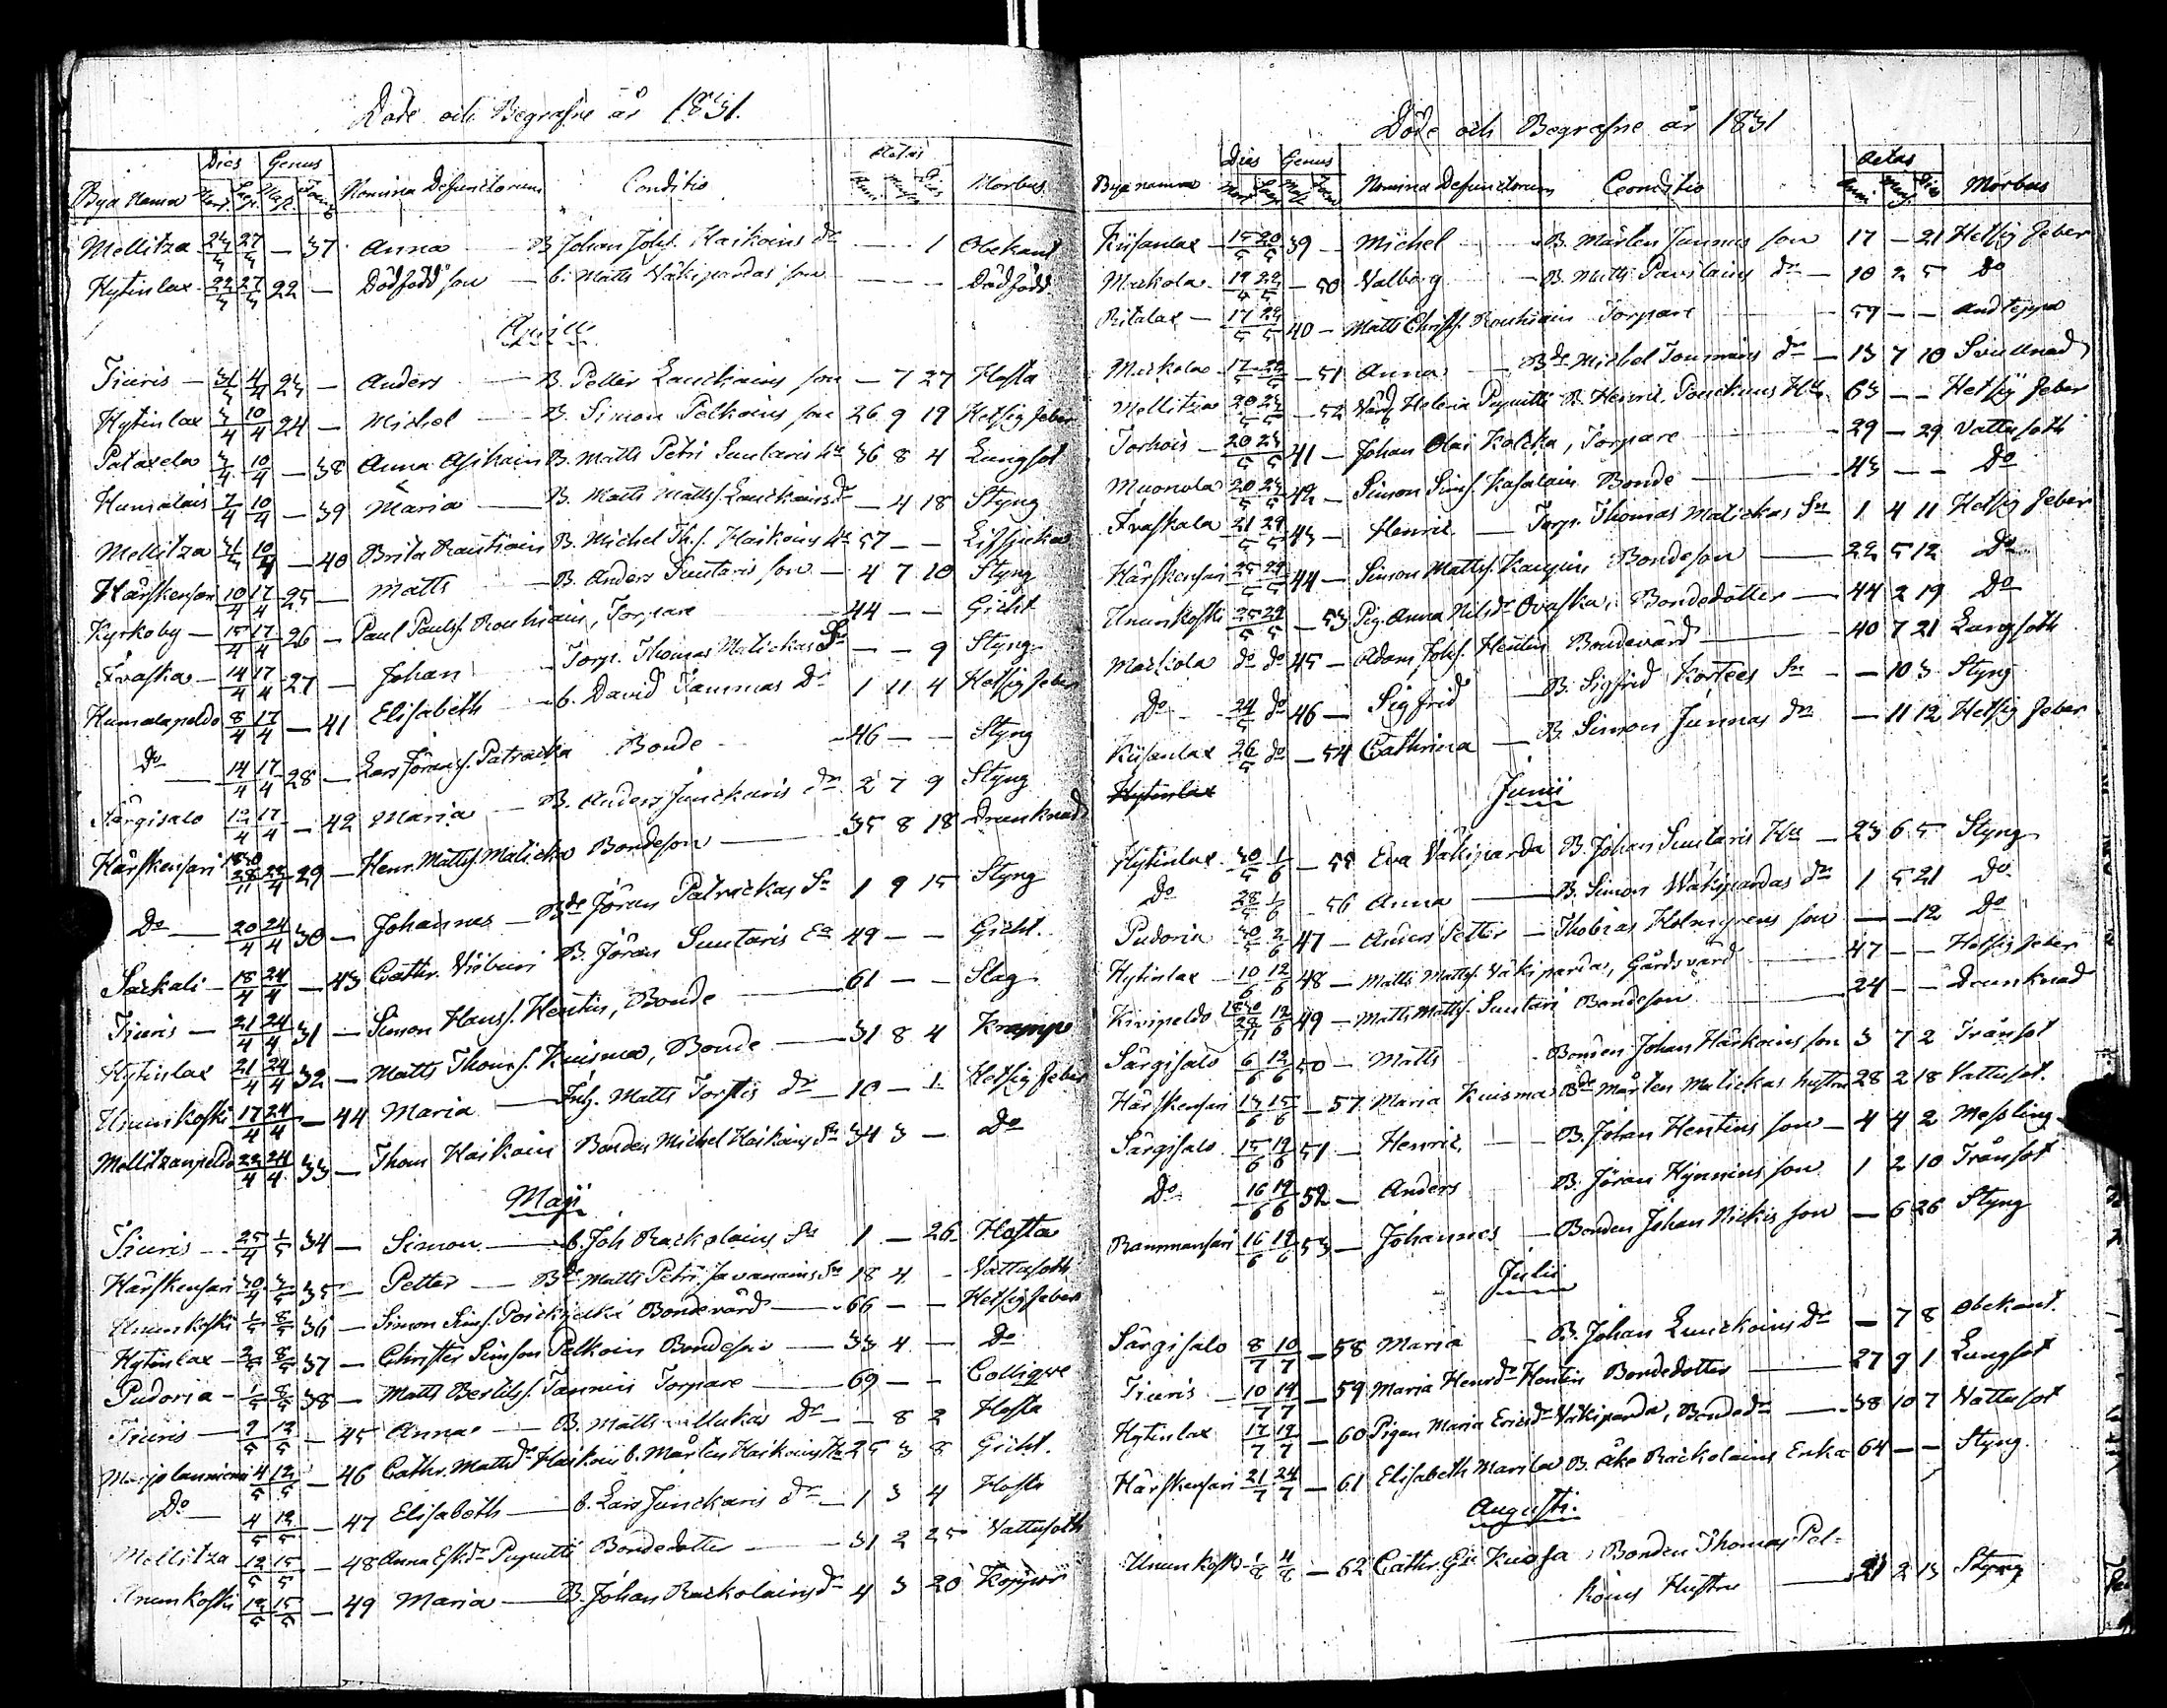 Döde och Begrafne år 1831.
Dies Genus Aetas
Bya Namn Mort. Sep. Mask. Foem. Nomina Defunctorum Conditio Anni Mens. Dies Morbus
Mellitza 24/3 27/3 — 37 Anna B. Johan Johs. Haikoins dr — — 1 Obekant
Hytinlax 22/3 27/3 22 — Dödfödd son b. Matts Väkipardas son — — — Dödfödd
April
Tiuris 31/3 4/4 23 — Anders B. Petter Lauckains son — 7 27 Hosta
Hytinlax 3/4 10/4 24 — Michel B. Simon Pelkoins son 26 9 19 Hetsig feber
Pataxela 3/4 10/4 — 38 Anna Asikain B. Matts Petri Suutaris Hu 36 8 4 Lungsot
Humalais 7/4 10/4 — 39 Maria B. Matts Mattss. Lauckains dr — 4 18 Styng
Mellitza 31/3 10/4 — 40 Brita Rautiain B. Michel Th.s. Haikoins Hu 57 — —
Härskensari 10/4 17/4 25 — Matts B. Anders Suutaris son — 4 7 10 Styng
Kyrkoby 15/4 17/4 26 — Paul Paulss. Rouhiain, Torpare 44 — — Gicht
Ivaska 14/4 17/4 27 — Johan Torp. Thomas Malickas Sn — — 9 Styng
Humalapeldo 8/4 17/4 — 41 Elisabeth b. David Jammas Dr 1 11 4 Hetsig feber
Do 14/4 17/4 28 — Lars Jörans. Patracka Bonde 46 — — Styng
Särgisalo 12/4 17/4 — 42 Maria B. Anders Junckaris dr 2 7 9 Styng
Härskensari 1830 28/11 22/4 29 — Henr. Mattss. Malicka Bondeson 35 8 18 Drunknad
Do 20/4 24/4 30 — Johannes Bde Jöran Patrackas Sn 1 9 15 Styng
Sarkali 18/4 24/4 — 43 Cathr. B. Jöran Suutaris Ea 49 — — Gicht.
Tiuris 21/4 24/4 31 — Simon Hanss. Hentin, Bonde 61 — — Slag
Hytinlax 21/4 24/4 32 — Matts Thoms. Kuisma, Bonde 31 8 4 Krampe
Ununkoski 17/4 24/4 — 44 Maria Inh. Matts Torstis dr 10 — 1 Hetsig feber
Mellitzanpeldo 22/4 24/4 33 — Thom Haikoin Bonden Michel Haikoins Sn 34 3 — Do
Maji
Tiuris 25/4 1/5 34 — Simon b. Joh Rackolains Sn 1 — 26 Hosta
Härskensari 30/4 3/5 35 — Petter Bde Matts Petri Javanains Sn 18 4 — Vattusoth
Ununkoski 1/5 8/5 36 — Simon Sims. Bondevärd 66 — — Hetsig feber
Hytinlax 2/5 8/5 37 — Christer Simson Palkoin Bondeson 33 4 — Do
Pudoria 1/5 8/5 38 — Matts Bertilss. Tannin Torpare 69 — — Collique
Tiuris 9/5 12/5 — 45 Anna B. Matts Mukas Dr — 8 2 Hosta
4/5 12/5 — 46 Cathr. Mattsdr Haikoin b. Mårten Haikoins Hu 25 3 8 Gicht.
Do 4/5 12/5 — 47 Elisabeth b. Lars Junckaris dr 1 3 4 Hosta
Mellitza 12/5 15/5 — 48 Anna Eskdr Puputti Bondedotter 31 2 25 Vattusoth
Ununkoski 12/5 15/5 — 49 Maria B. Johan Rackolains dr 4 3 20 Koppor
Döde och Begrafne år 1831
Dies Genus Aetas
Bya namn Mort. Sep. Mask. Foem. Nomina Defunctorum Conditio Anni Mens. Dies Morbus
Kiisanlax 15/5 20/5 39 — Michel B. Mårten Junnus son 17 — 21 Hetsig feber
Muskola 19/5 22/5 — 50 Valborg B. Matts Pavilains dr 10 2 5 Do
Ritalax 17/5 22/5 40 — Matts Christs. Rouhiain Torpare 59 — — Andtäppa
Muskola 17/5 22/5 — 51 Anna Bde Michel Toumains dr 13 7 10 Svullnad
Mellitza 20/5 23/5 — 52 Värd. Helena Puputti B. Henric Pouckains Hu 63 — — Hetsig feber
Torhois 20/5 23/5 41 — Johan Olai Kolcka, Torpare 29 — 29 Vattusoth
Muonola 20/5 23/5 42 — Simon Sims. Kasalain Bonde 43 — — Do
Ivaskala 21/5 29/5 43 — Henric Torp. Thomas Malickas Sn 1 4 11 Hetsig feber
Härskensari 25/5 29/5 44 — Simon Mattss. Kaupin Bondeson 22 5 12 Do
Ununkoski 25/5 29/5 — 53 Pig. Anna Nilsdr Ovaska, Bondedotter 44 2 19 Do
Muskola do do 45 — Adam Johs. Hentin Bondevärd 40 7 21 Lungsoth
Do 24/5 do 46 — Sigfrid B. Sigfrid Kortees Sn — 10 3 Styng
Kiisanlax 26/5 do — 54 Cathrina B. Simon Junnas dr — 11 12 Hetsig feber
Hytinlax
Junii
Hytinlax 30/5 1/6 — 55 Eva Väkiparda B. Johan Suutaris Hu 23 6 5 Styng
Do 28/5 1/6 — 56 Anna B. Simon Wäkipardas dr 1 5 21 Do
Pudoria 30/5 2/6 47 — Anders Petter Thobias Holmgrens son — — 12 Do
Hytinlax 10/6 12/6 48 — Matts Mattss. Väkiparda, Gårdsvärd 47 — — Hetsig feber
Kivipeldo 1830 28/11 12/6 49 — Matts Mattss. Suutari Bondeson 24 — — Drunknad
Särgisalo 6/6 12/6 50 — Matts Bonden Johan Härkoins son 3 7 2 Trånsot
Härskensari 13/6 15/6 — 57 Maria Kuisma Bde Mårten Malickas hustru 28 2 18 Vattusot.
Särgisalo 15/6 19/6 51 — Henric B. Johan Hentins son 4 4 2 Messling
Do 16/6 19/6 52 — Anders B. Jöran Hynnins son 1 2 10 Trånsot
Rammansari 16/6 19/6 53 — Johannes Bonden Johan Nickis son — 6 26 Styng
Julii
Särgisalo 8/7 10/7 — 58 Maria B. Johan Lunckoins Dr — 7 8 Obekant.
Tiuris 10/7 14/7 — 59 Maria Henrdr Hentin Bondedotter 27 9 1 Lungsot
Hytinlax 17/7 19/7 — 60 Pigan Maria Ericsdr Väkiparda, Bondedr 38 10 7 Vattusot
Härskensari 21/7 24/7 — 61 Elisabeth Marila B. Åke Rackolains Enka 64 — — Styng
Augusti.
Ununkoski 1/8 4/8 — 62 Cathr. Kuosa, Bonden Thomas Pel-
koins Hustru 21 2 13 Styng